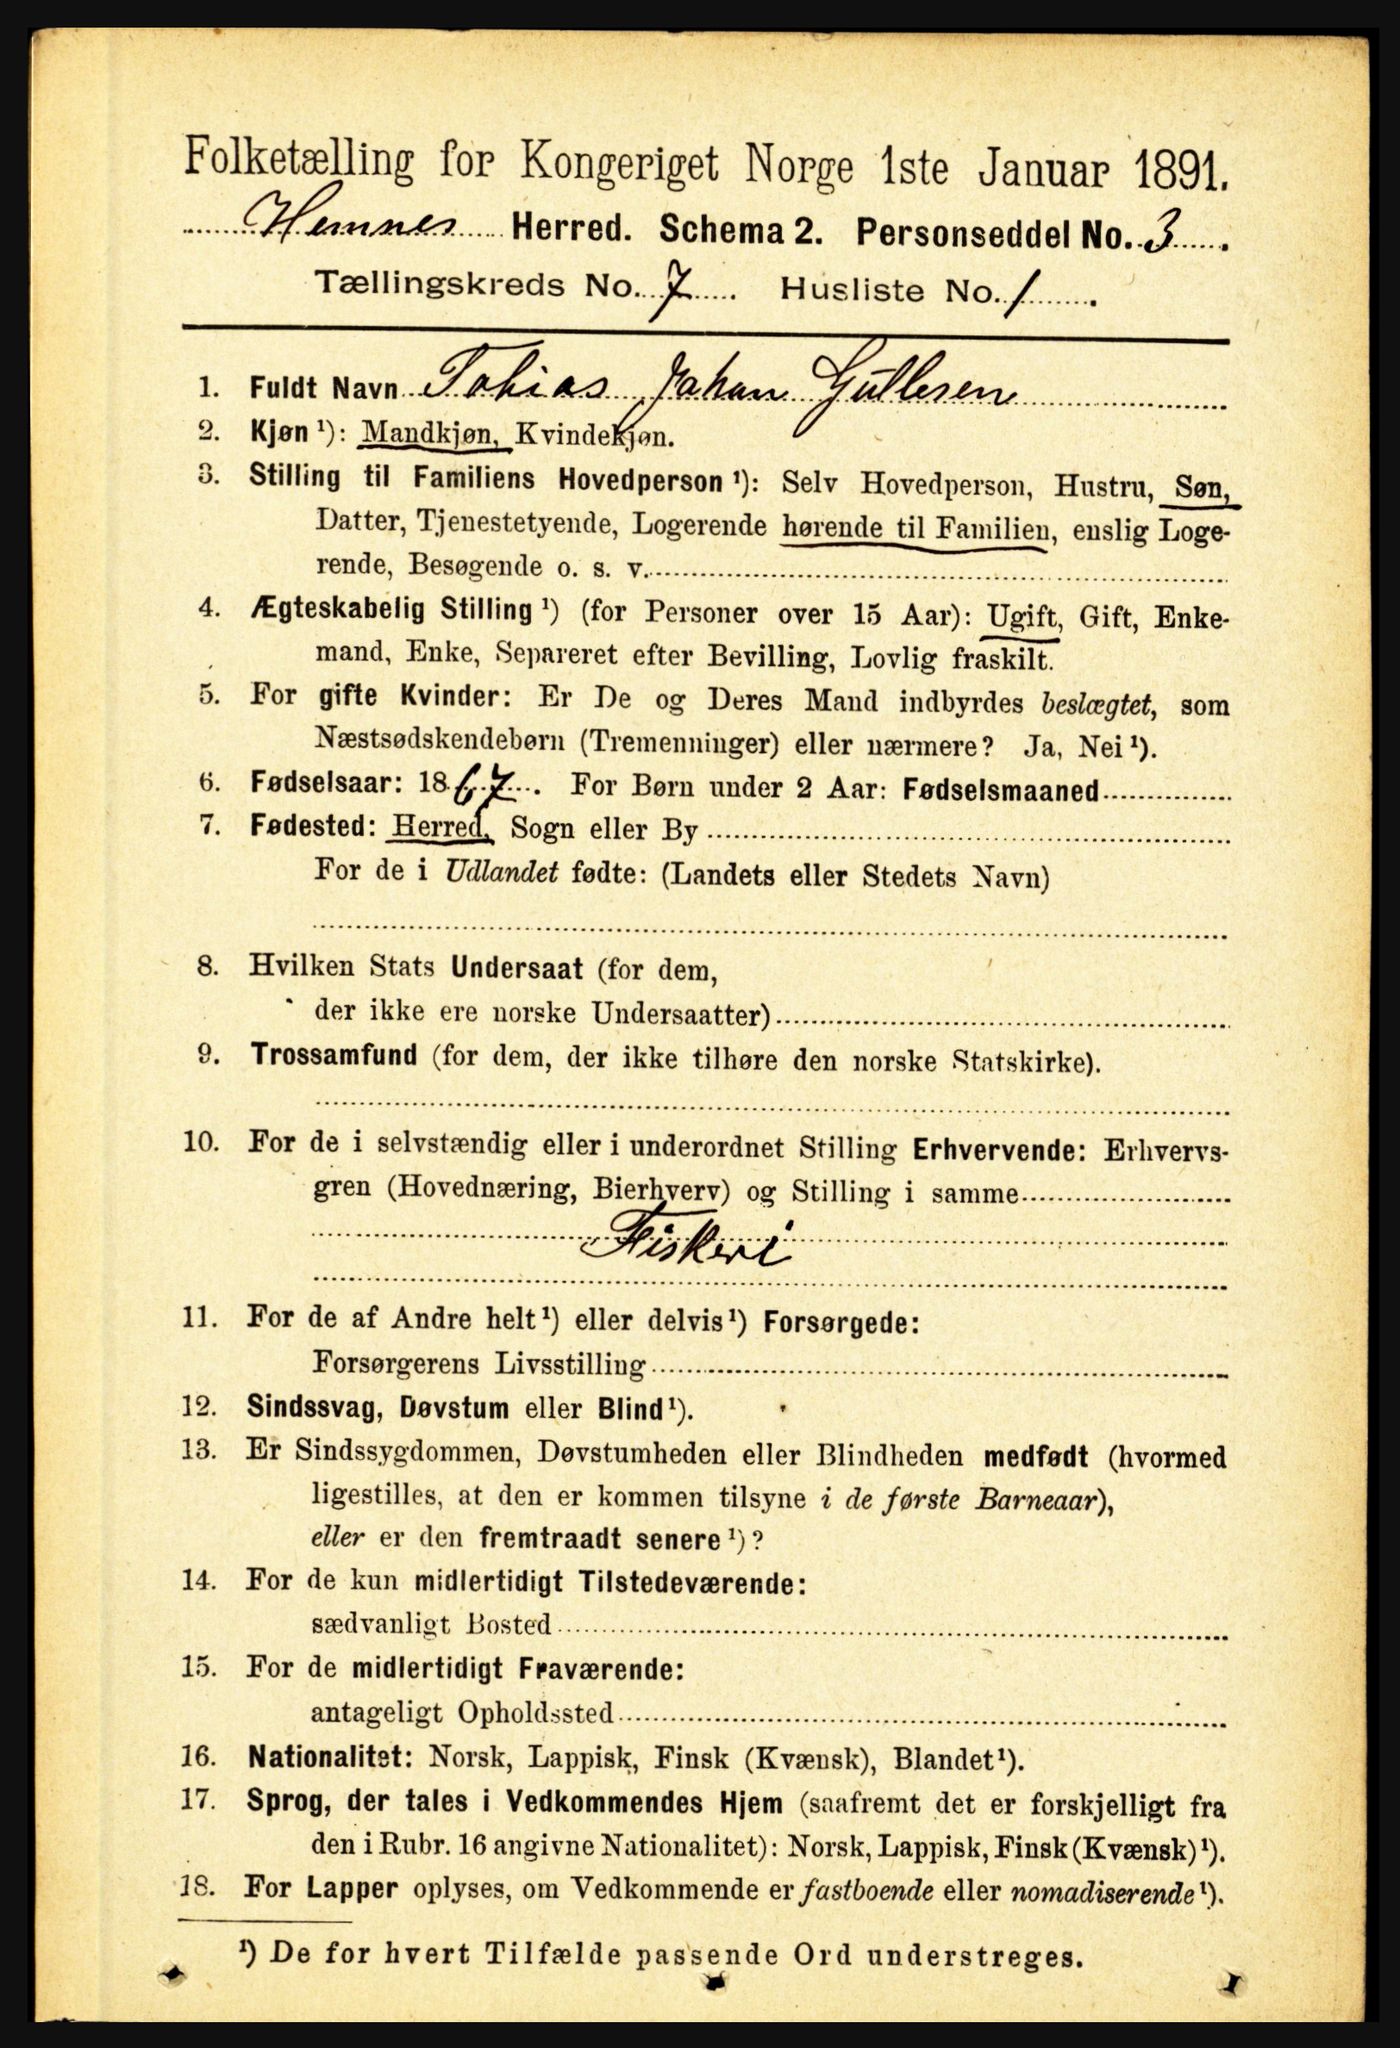 Folketælling for Kongeriget Norge 1ste Januar 1891.
Hemnes Herred. Schema 2. Personseddel No. 3.
Tællingskreds No. 7. Husliste No. 1.
1. Fuldt Navn Tobias Johan Gullesen
2. Kjøn ¹): Mandkjøn, Kvindekjøn.
3. Stilling til Familiens Hovedperson ¹): Selv Hovedperson, Hustru, Søn,
Datter, Tjenestetyende, Logerende hørende til Familien, enslig Loge-
rende, Besøgende o. s. v.
4. Ægteskabelig Stilling ¹) (for Personer over 15 Aar): Ugift, Gift, Enke-
mand, Enke, Separeret efter Bevilling, Lovlig fraskilt.
5. For gifte Kvinder: Er De og Deres Mand indbyrdes beslægtet, som
Næstsødskendebørn (Tremenninger) eller nærmere? Ja, Nei ¹).
6. Fødselsaar: 1867. For Børn under 2 Aar: Fødselsmaaned
7. Fødested: Herred, Sogn eller By
For de i Udlandet fødte: (Landets eller Stedets Navn)
8. Hvilken Stats Undersaat (for dem,
der ikke ere norske Undersaatter)
9. Trossamfund (for dem, der ikke tilhøre den norske Statskirke).
10. For de i selvstændig eller i underordnet Stilling Erhvervende: Erhvervs-
gren (Hovednæring, Bierhverv) og Stilling i samme
Fiskeri
11. For de af Andre helt ¹) eller delvis ¹) Forsørgede:
Forsørgerens Livsstilling
12. Sindssvag, Døvstum eller Blind ¹).
13. Er Sindssygdommen, Døvstumheden eller Blindheden medfødt (hvormed
ligestilles, at den er kommen tilsyne i de første Barneaar),
eller er den fremtraadt senere ¹)?
14. For de kun midlertidigt Tilstedeværende:
sædvanligt Bosted
15. For de midlertidigt Fraværende:
antageligt Opholdssted
16. Nationalitet: Norsk, Lappisk, Finsk (Kvænsk), Blandet ¹).
17. Sprog, der tales i Vedkommendes Hjem (saafremt det er forskjelligt fra
den i Rubr. 16 angivne Nationalitet): Norsk, Lappisk, Finsk (Kvænsk) ¹).
18. For Lapper oplyses, om Vedkommende er fastboende eller nomadiserende ¹).
¹) De for hvert Tilfælde passende Ord understreges.